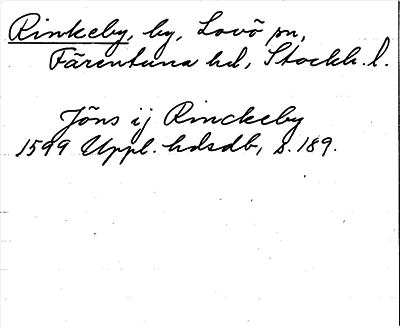 Rinkeby, by, Lovö sn,
Färentuna hd, Stockh. l.
Jöns ij Rinckeby
1599 Uppl. hdsdb, s. 189.